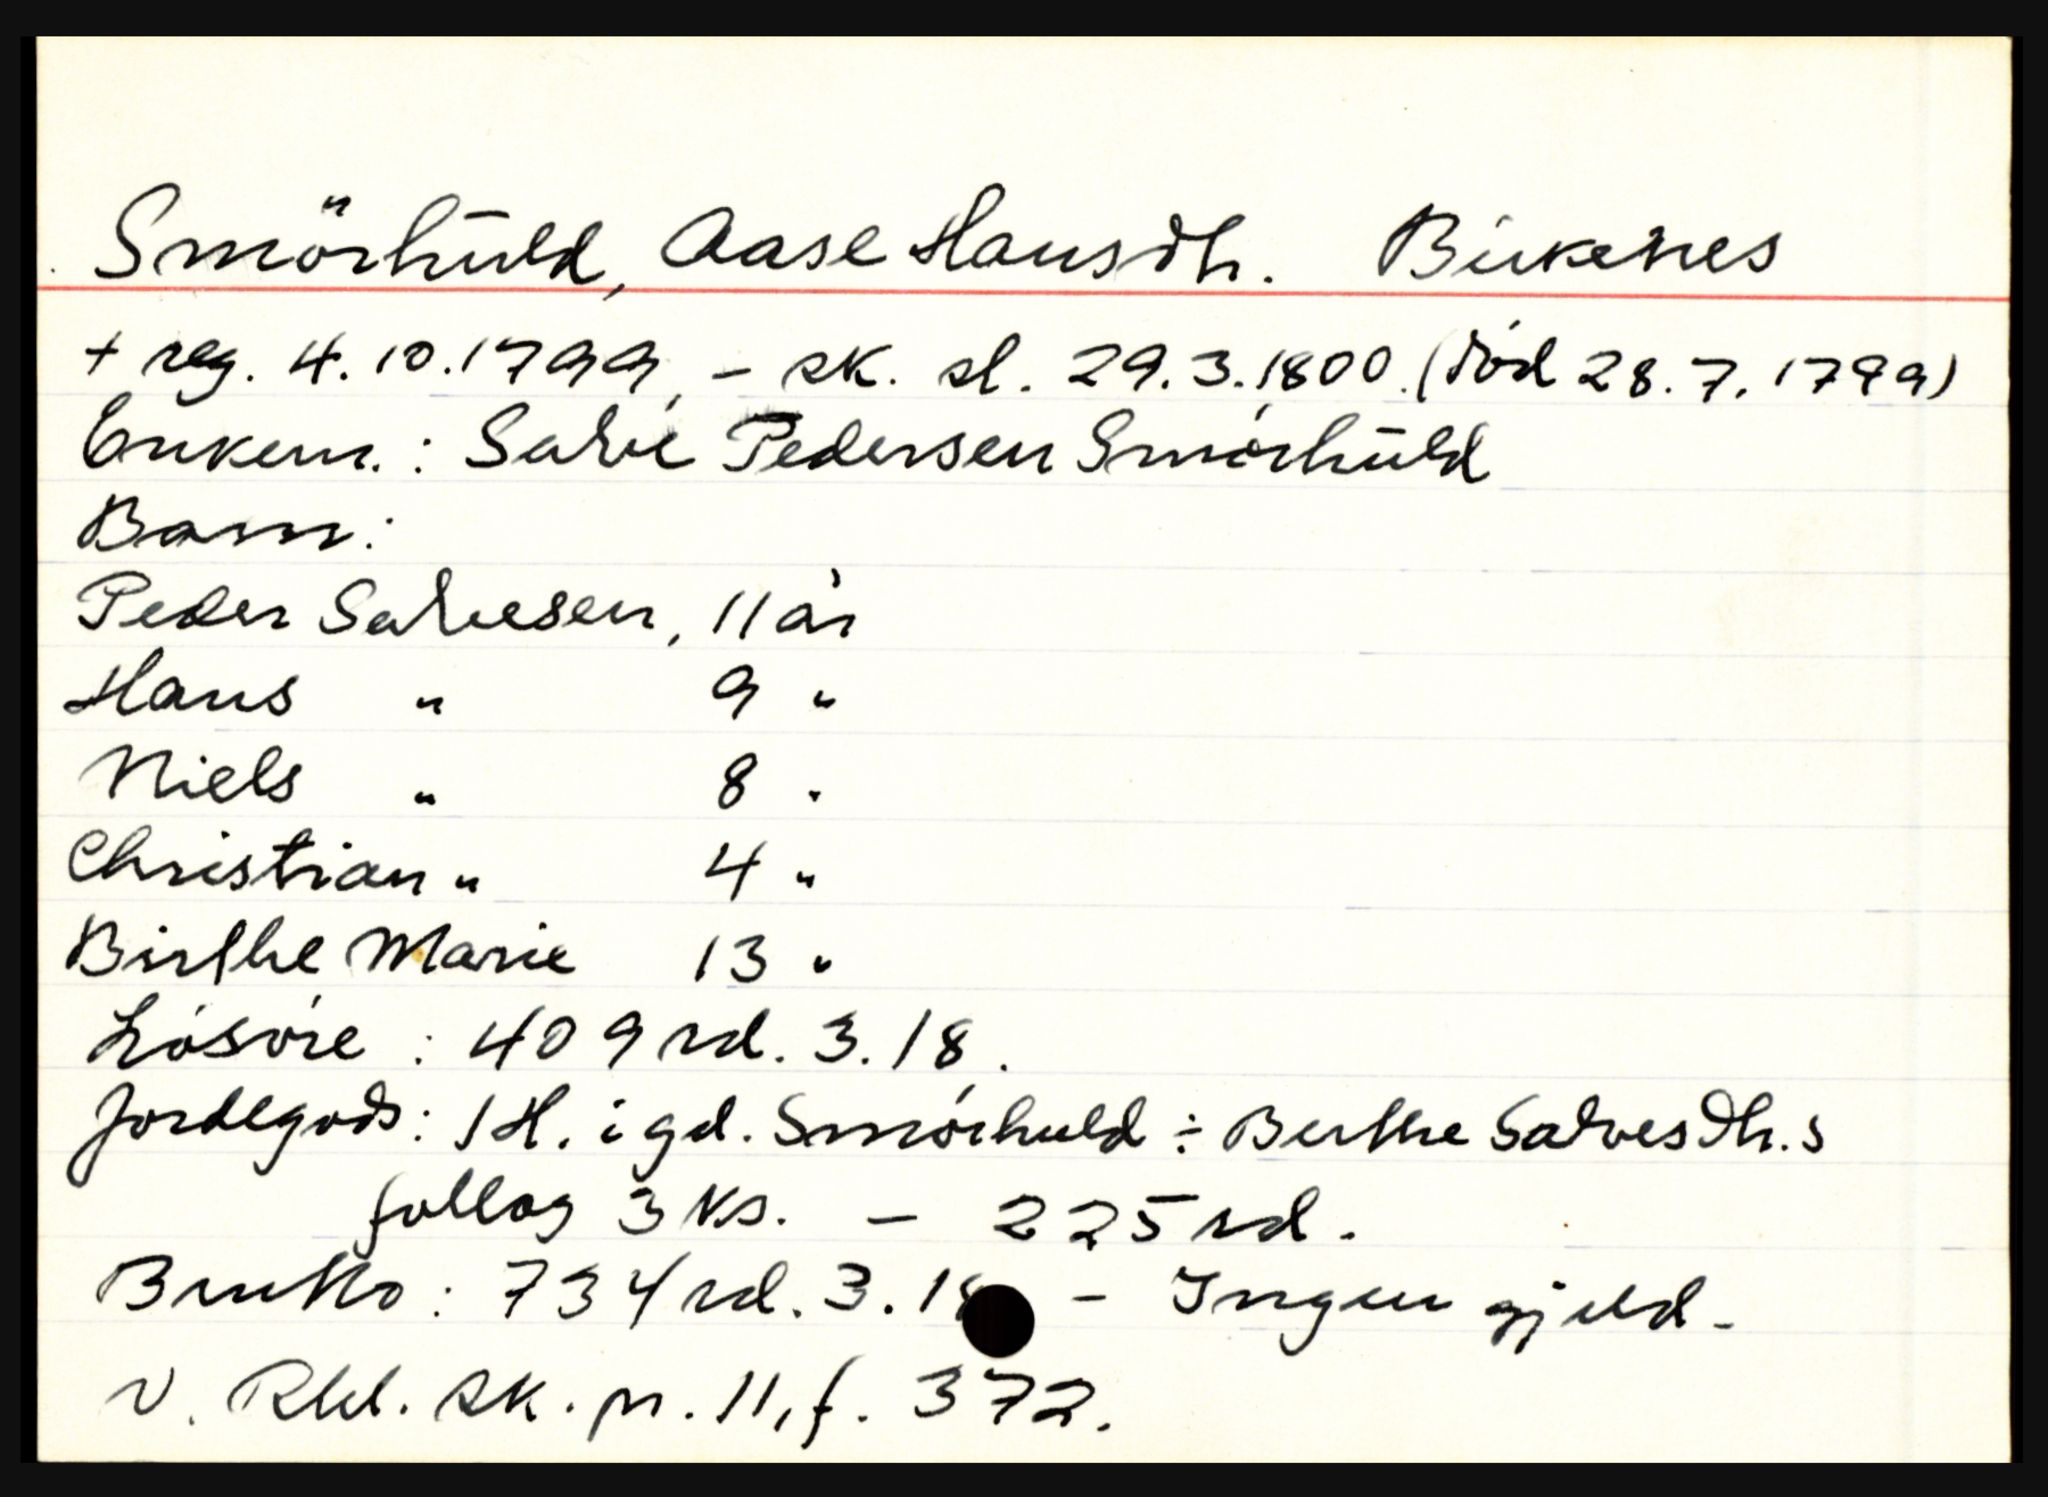 Smörhüld, Aase Hansdtr. Birkenes
+ reg. 4.10.1799, - sk. sl. 29.3.1800. (död 28.7.1799)
Enkem.: Salve Pedersen Smórhüld
Barn:
Peder Salvesen, 11 år
Hans " 9 "
Niels " 8 "
Christian " 4 "
Birthe Marie 13 "
Lósóre : 409 rd. 3. 18.
Jordegods: 1 H. i gd. Smórhuld ÷ Berthe Salvesdtr.s
follag 3 ks. - 225 rd.
Brutto: 734 rd. 3. 18 - Ingen gjeld.
V. Rbl. sk. pr. 11, f. 372.